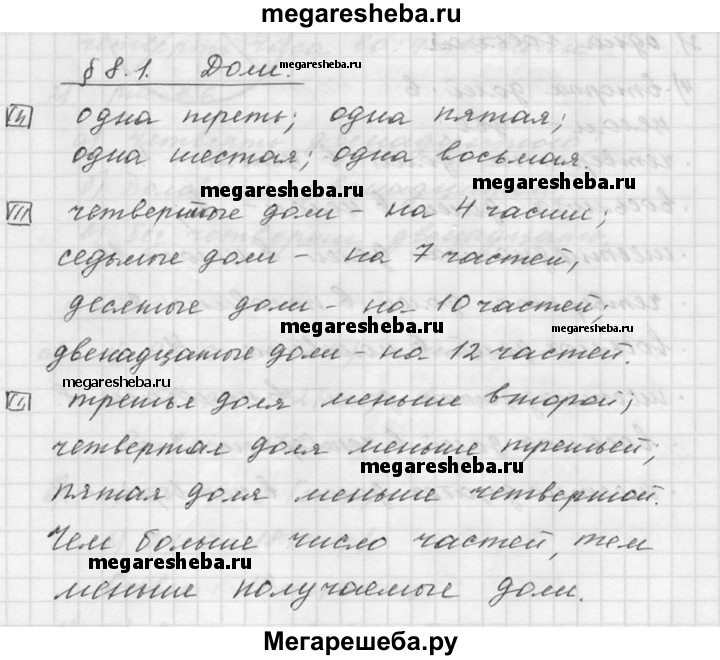 megaresheba.ru
§ 8.1. Доли. megaresheba.ru
одна треть; одна пятая;
одна шестая; одна восьмая.
megaresheba.ru megaresheba.ru
VII четвертые доли - на 4 части;
седьмые доли - на 7 частей;
десятые доли - на 10 частей;
megaresheba.ru megaresheba.ru
двенадцатые доли - на 12 частей.
megaresheba.ru
третья доля меньше второй;
четвертая доля меньше третьей;
megaresheba.ru
пятая доля меньше четвертой.
Чем больше число частей, тем
megaresheba.ru
меньше получаемые доли.
Мегарешеба.ру